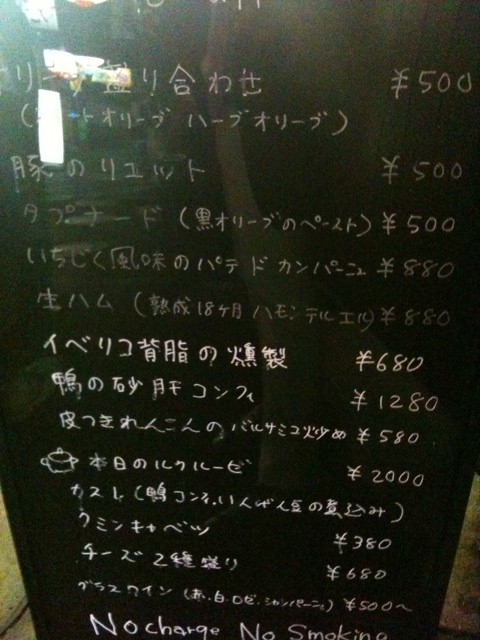 リ 盛り合わせ ¥500
( トオリーブ ハーブオリーブ)
豚のリエット ¥500
タプナード (黒オリーブのペースト) ¥500
いちじく風味のパテドカンパーニュ ¥880
生ハム (熟成18ヶ月 ハモンデルエル) ¥880
イベリコ背脂の燻製 ¥680
鴨の砂肝コンフィ ¥1280
皮つきれんこんのバルサミコ炒め ¥580
本日のルクルーゼ ¥2000
カスレ(鴨コンフィ、いんげん豆の煮込み)
クミンキャベツ ¥380
チーズ2種盛り ¥680
グラスワイン (赤.白.ロゼ.シャンパーニュ) ¥500〜
No charge No Smoking